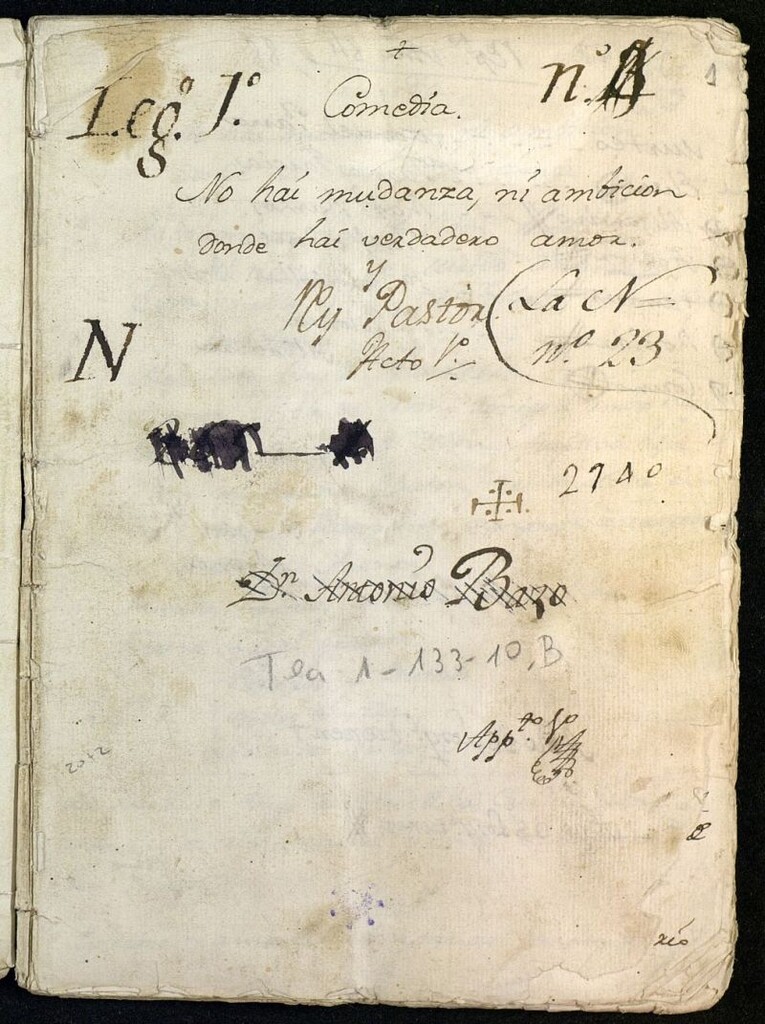 Leg.º 1.º
Comedia.
n.º
No hai mudanza, ni ambicion
donde hai verdadero amor.
y
Rey Pastor
La N
nº. 23
Acto 1.º
N
2740
Dn. Antonio Bazo
Tea 1-133-10, B
App.to